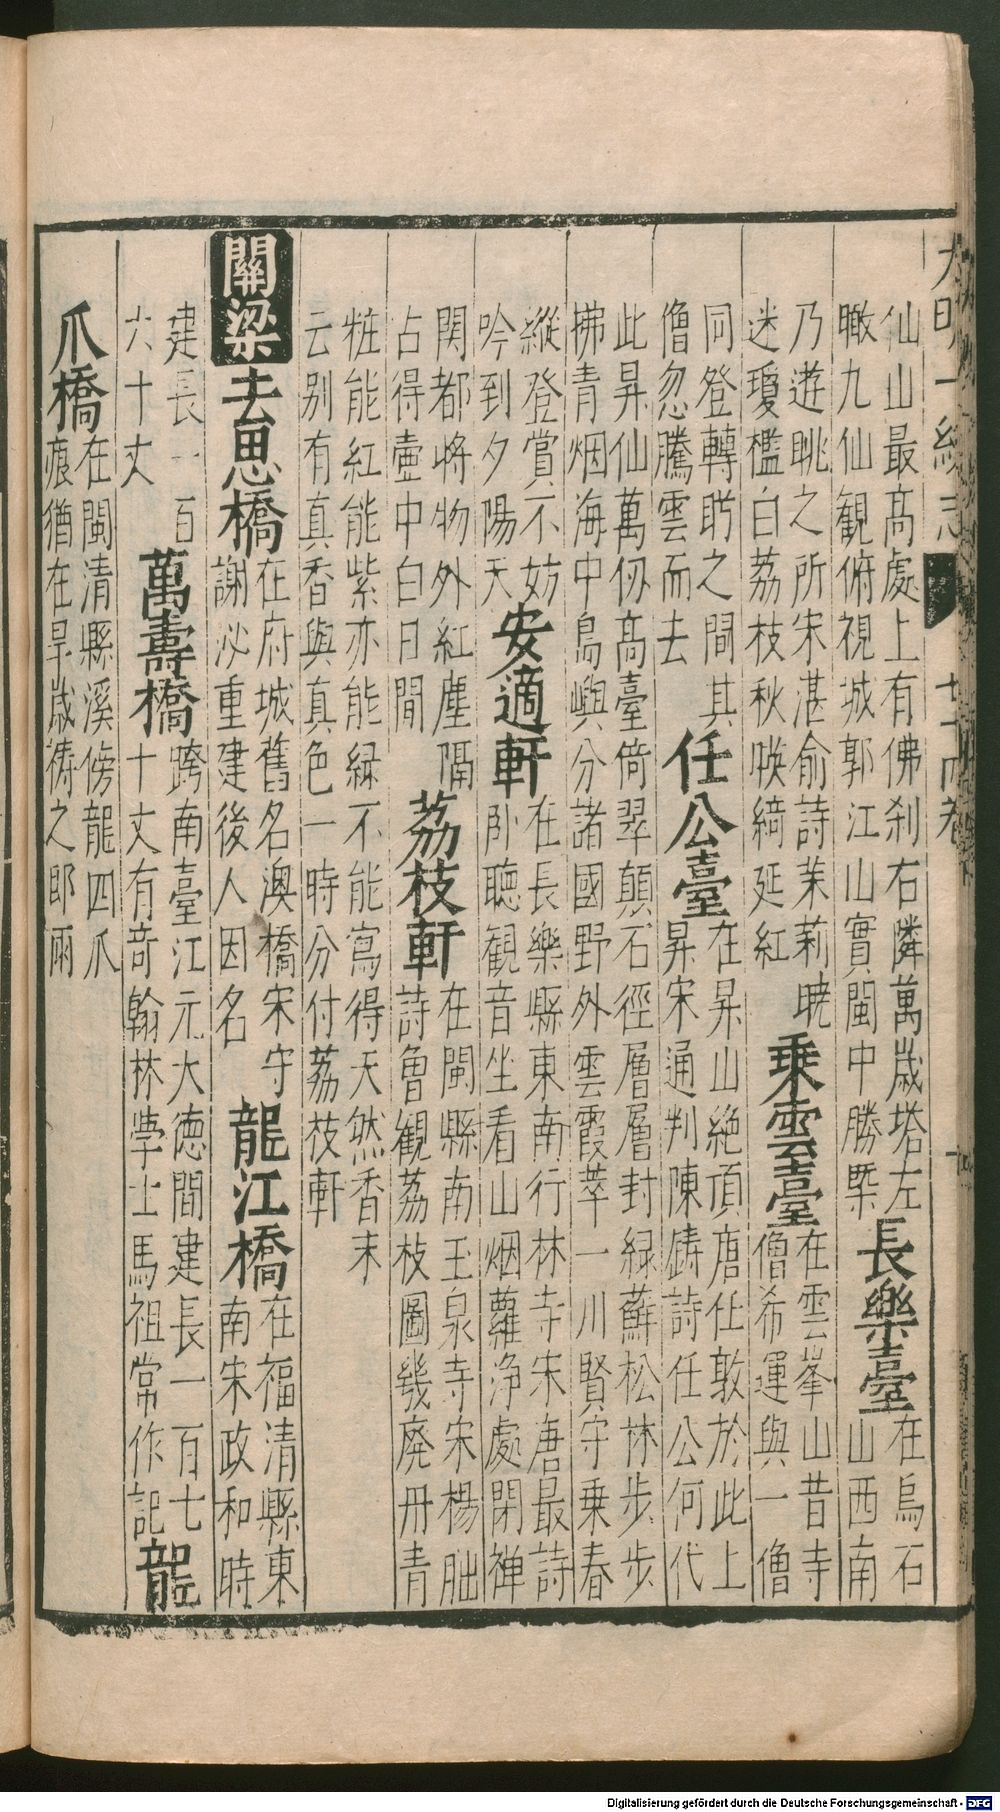 大明一統志
七十四卷
仙山最髙處上有佛刹右隣萬歲塔左
瞰九仙観俯視城郭江山實閩中勝槩
長樂臺
在烏石
山西南
乃遊眺之所宋湛俞詩茉莉暁
迷瓊檻白荔枝秋暎綺延紅
乗雲臺
在雲峯山昔寺
僧希運與一僧
同登轉盻之間其
僧忽騰雲而去
任公臺
在昇山絶頂唐任敦於此上
昇宋通判陳鑄詩任公何代
此昇仙萬仭髙臺倚翠顛石徑層層封緑蘚松林步步
拂青烟海中島嶼分諸國野外雲霞萃一川賢守乗春
縱登賞不妨
吟到夕陽天
安適軒
在長樂縣東南行林寺宋唐最詩
卧聴観音坐看山烟蘿浄處閉禅
関都將物外紅塵隔
占得壷中白日間
荔枝軒
在閩縣南玉泉寺宋楊朏
詩曽観荔枝圖幾廃丹青
粧能紅能紫亦能緑不能寫得天然香末
云别有真香與真色一時分付荔枝軒
關梁
去思橋
在府城舊名澳橋宋守
謝泌重建後人因名
龍江橋
在福清縣東
南宋政和時
建長一百
六十丈
萬壽橋
跨南臺江元大徳間建長一百七
十丈有竒翰林學士馬祖常作記
龍
爪橋
在閩清縣溪傍龍四爪
痕猶在旱歲禱之即雨
Digitalisierung gefördert durch die Deutsche Forschungsgemeinschaft - DFG